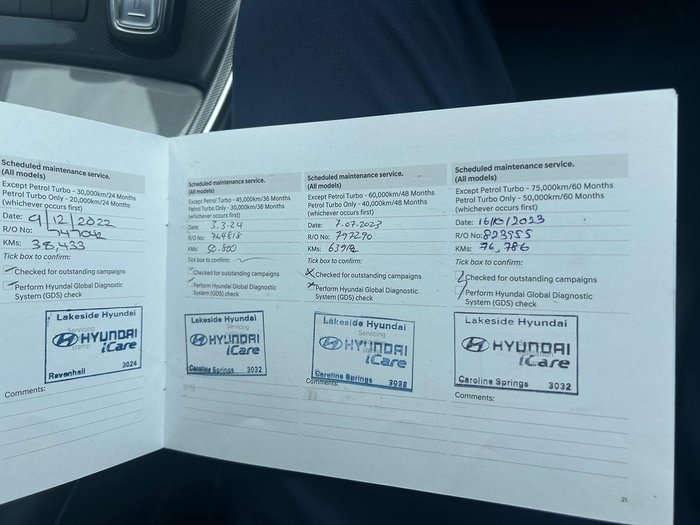 Scheduled maintenance service.
(All models)
Except Petrol Turbo - 30,000km/24 Months
Petrol Turbo Only - 20,000km/24 Months
(whichever occurs first)
Date: 9/12/2022
R/O No: 747042
KMs: 38,433
Tick box to confirm:
Checked for outstanding campaigns
Perform Hyundai Global Diagnostic
System (GDS) check
Lakeside Hyundai
Servicing
stamp
HYUNDAI
iCare
Ravenhall 3024
Comments:
Scheduled maintenance service.
(All models)
Except Petrol Turbo - 45,000km/36 Months
Petrol Turbo Only - 30,000km/36 Months
(whichever occurs first)
Date: 3.3.24
R/O No: 764818
KMs: 50.800
Tick box to confirm:
Checked for outstanding campaigns
Perform Hyundai Global Diagnostic
System (GDS) check
Lakeside Hyundai
Servicing
HYUNDAI
iCare
Caroline Springs 3032
Scheduled maintenance service.
(All models)
Except Petrol Turbo - 60,000km/48 Months
Petrol Turbo Only - 40,000km/48 Months
(whichever occurs first)
Date: 7.07.2023
R/O No: 797290
KMs:
Tick box to confirm:
Checked for outstanding campaigns
Perform Hyundai Global Diagnostic
System (GDS) check
Lakeside Hyundai
Servicing
HYUNDAI
iCare
Caroline Springs 3032
Comments:
Scheduled maintenance service.
(All models)
Except Petrol Turbo - 75,000km/60 Months
Petrol Turbo Only - 50,000km/60 Months
(whichever occurs first)
Date: 16/10/2023
R/O No: 823955
KMs: 76,786
Tick box to confirm:
Checked for outstanding campaigns
Perform Hyundai Global Diagnostic
System (GDS) check
Lakeside Hyundai
HYUNDAI
iCare
Caroline Springs 3032
Comments:
21